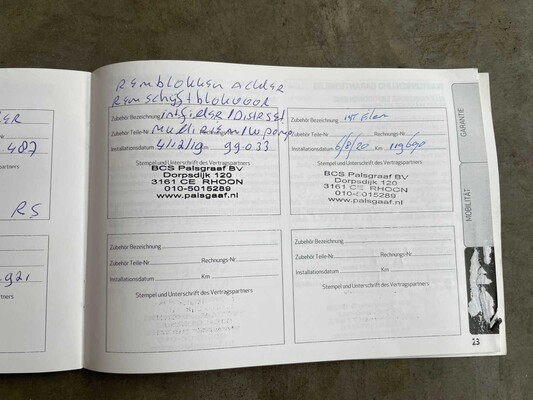 Remblokken Achter
Remschijf+blok voor
Zubehör Bezeichnung
Zubehör Teile-Nr. Multiriem/W.pomp
Installationsdatum 4/12/19 99.033
Stempel und Unterschrift des Vertragspartners
BCS Palsgraaf BV
Dorpsdijk 120
3161 CE RHOON
010-5015289
www.palsgaaf.nl
Zubehör Bezeichnung
Zubehör Teile-Nr. Rechnungs-Nr.
Installationsdatum 6/8/20 Km
Stempel und Unterschrift des Vertragspartners
BCS Palsgraaf BV
Dorpsdijk 120
3161 CE RHOON
010-5015289
www.palsgaaf.nl
487
RS
partners
Zubehör Bezeichnung
Zubehör Teile-Nr. Rechnungs-Nr.
Installationsdatum Km
Stempel und Unterschrift des Vertragspartners
Zubehör Bezeichnung
Zubehör Teile-Nr. Rechnungs-Nr.
Installationsdatum Km
Stempel und Unterschrift des Vertragspartners
921
partners
GARANTIE
MOBILITÄT
23